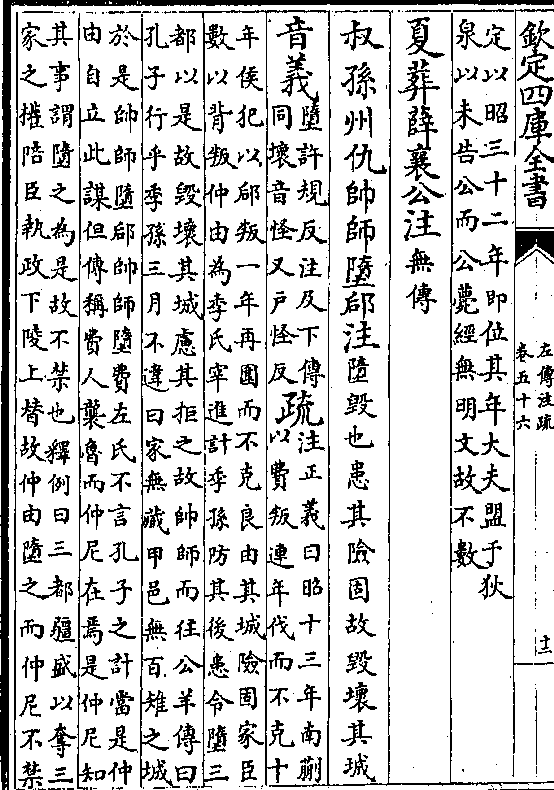 欽定四庫全書
左傳注疏
卷五十六
定以昭三十二年即位其年大夫盟于狄
泉以未告公而公薨經無明文故不數
夏葬薛襄公注無傳
叔孫州仇帥師墮郈注墮毀也患其險固故毀壞其城
音義
墮許規反注及下傳
同壞音怪又戶怪反
疏
注正義曰昭十三年南蒯
以費叛連年伐而不克十
年侯犯以郈叛一年再圍而不克良由其城險固家臣
數以背叛仲由為季氏宰進計季孫防其後患令墮三
都以是故毀壞其城慮其拒之故帥師而往公羊傳曰
孔子行乎季孫三月不違曰家無藏甲邑無百雉之城
於是帥師墮郈帥師墮費左氏不言孔子之計當是仲
由自立此謀但傳稱費人襲魯而仲尼在焉是仲尼知
其事謂墮之為是故不禁也釋例曰三都彊盛以奪三
家之權陪臣執政下陵上替故仲由墮之而仲尼不禁